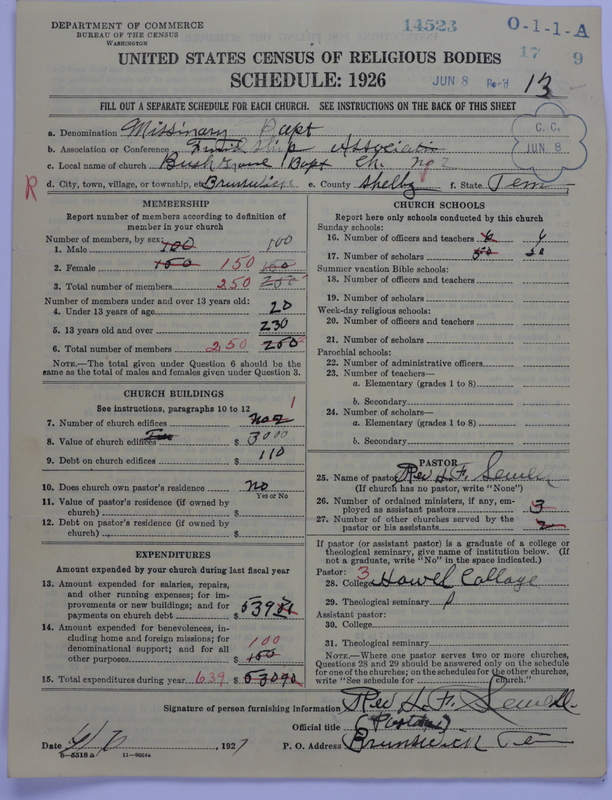 DEPARTMENT OF COMMERCE
BUREAU OF THE CENSUS
WASHINGTON
14523
O-1-1-A
17 9
UNITED STATES CENSUS OF RELIGIOUS BODIES
SCHEDULE: 1926
JUN 8
13
FILL OUT A SEPARATE SCHEDULE FOR EACH CHURCH. SEE INSTRUCTIONS ON THE BACK OF THIS SHEET
C. C.
JUN 8
a. Denomination Missinary Bapt
b. Association or Conference Association
c. Local name of church Bush Grove Bapt Ch. No 2
R
d. City, town, village, or township, etc Brunswick e. County Shelby f. State Tenn
MEMBERSHIP
Report number of members according to definition of member in your church
Number of members, by sex:
1. Male 100 100
2. Female 150 150 150
3. Total number of members 250 250
Number of members under and over 13 years old:
4. Under 13 years of age 20
5. 13 years old and over 230
6. Total number of members 250 250
NOTE.—The total given under Question 6 should be
same as the total of males and females given under Question 3.
CHURCH BUILDINGS
See instructions, paragraphs 10 to 12
1
7. Number of church edifices
8. Value of church edifices $ 3000
9. Debt on church edifices $ 110
10. Does church own pastor's residence No
Yes or No
11. Value of pastor's residence (if owned by
church) $
12. Debt on pastor's residence (if owned by
church) $
EXPENDITURES
Amount expended by your church during last fiscal year
13. Amount expended for salaries, repairs,
and other running expenses; for im-
provements or new buildings; and for
payments on church debt $ 539
14. Amount expended for benevolences, in-
cluding home and foreign missions; for
denominational support; and for all
other purposes $ 100 100
15. Total expenditures during year 639 $
CHURCH SCHOOLS
Report here only schools conducted by this church
Sunday schools:
16. Number of officers and teachers 6 4
17. Number of scholars 50 20
Summer vacation Bible schools:
18. Number of officers and teachers
19. Number of scholars
Week-day religious schools:
20. Number of officers and teachers
21. Number of scholars
Parochial schools:
22. Number of administrative officers
23. Number of teachers—
a. Elementary (grades 1 to 8)
b. Secondary
24. Number of scholars—
a. Elementary (grades 1 to 8)
b. Secondary
PASTOR
25. Name of pastor Rev H. F. Sewell
(If church has no pastor, write "None")
26. Number of ordained ministers, if any, em-
ployed as assistant pastors 3
27. Number of other churches served by the
pastor or his assistants 2
If pastor (or assistant pastor) is a graduate of a college or
theological seminary, give name of institution below. (If
not a graduate, write "No" in the space indicated.)
Pastor: 3
28. College Howel Collage
29. Theological seminary
Assistant pastor:
30. College
31. Theological seminary
NOTE.—Where one pastor serves two or more churches,
Questions 28 and 29 should be answered only on the schedule
for one of the churches; on the schedules for the other churches,
write "See schedule for church."
Signature of person furnishing information Rev H. F. Sewell
Official title (Pastor)
Date 1927 P. O. Address Brunswick Ten
8—5518 a 11—9664a